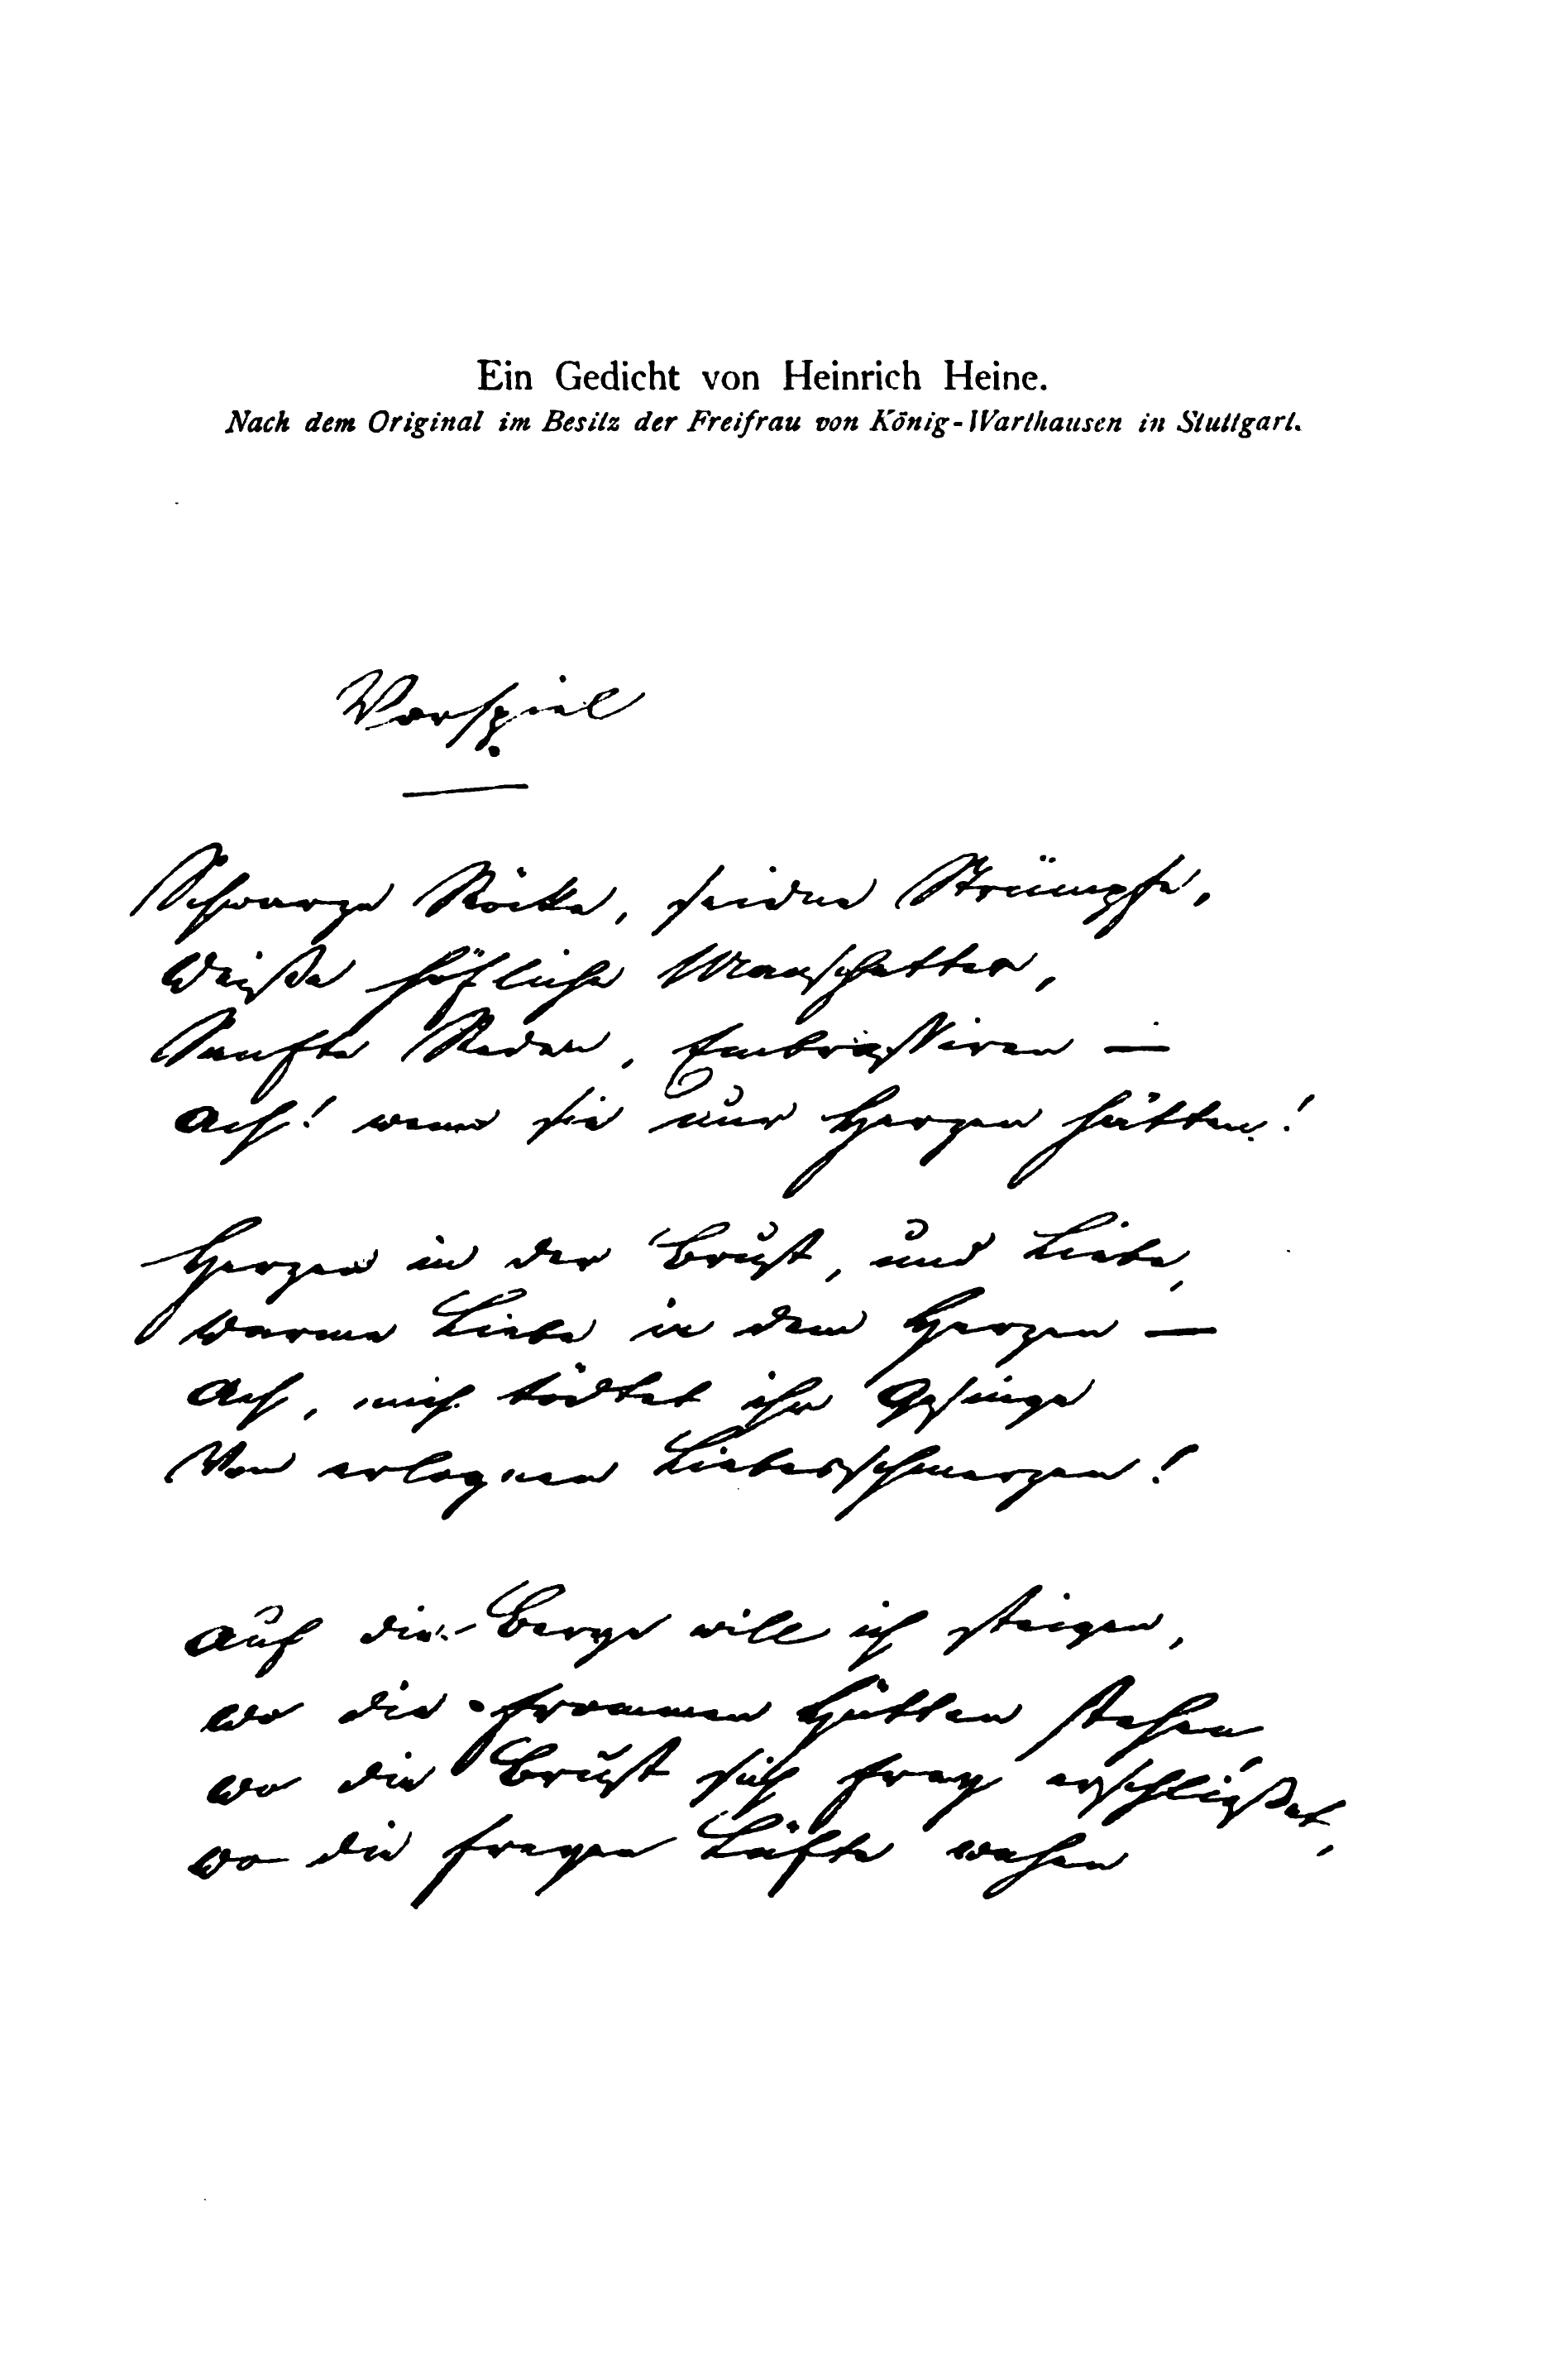 Ein Gedicht von Heinrich Heine.
Nach dem Original im Besitz der Freifrau von König-Warthausen in Stuttgart.
Vorspiel
Schwarze Röcke, seidne Strümpfe,
Weiße höfliche Manschetten,
Sanfte Reden, Embrassiren —
Ach! wenn sie nur Herzen hätten!
Herzen in der Brust, und Liebe,
Warme Liebe in dem Herzen —
Ach, mich tödtet ihr Gesinge
Von erlognen Liebesschmerzen!
Auf die Berge will ich steigen,
Wo die frommen Hütten stehen,
Wo die Brust sich frey erschließet,
Wo die freyen Lüfte wehen